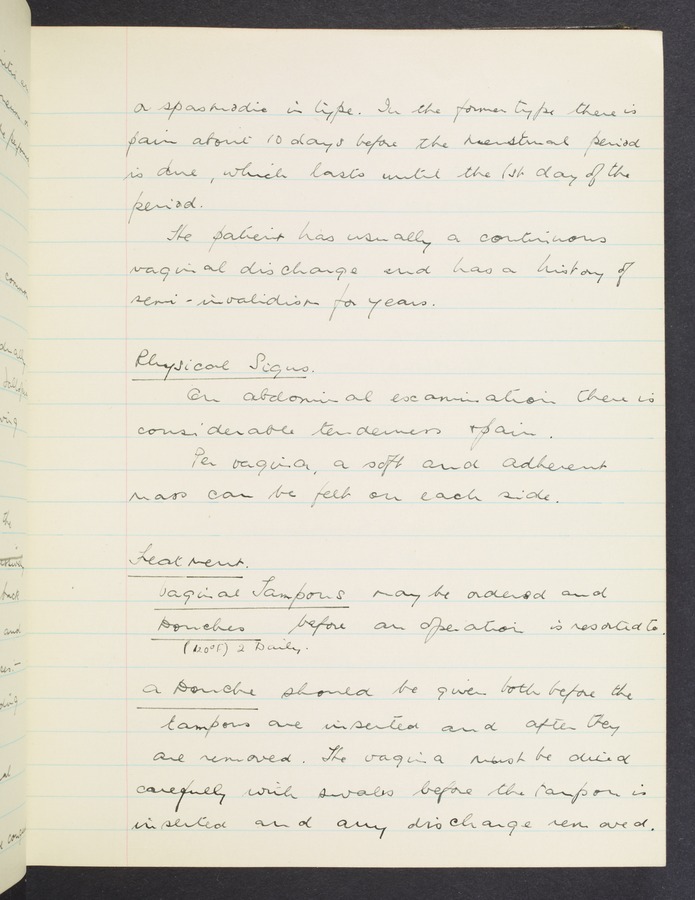 or spasmodic in type. In the former type there is
pain about 10 days before the menstrual period
is due, which lasts until the 1st day of the
period.
The patient has usually a continuous
vaginal discharge and has a history of
semi-invalidism for years.
Physical Signs.
On abdominal examination there is
considerable tenderness + pain.
Per vagina, a soft and adherent
mass can be felt on each side.
Treatment.
Vaginal Tampons may be ordered and
Douches before an operation is resorted to.
(120°F) 2 Daily.
A Douche should be given both before the
tampons are inserted and after they
are removed. The vagina must be dried
carefully with swabs before the tampon is
inserted and any discharge removed.